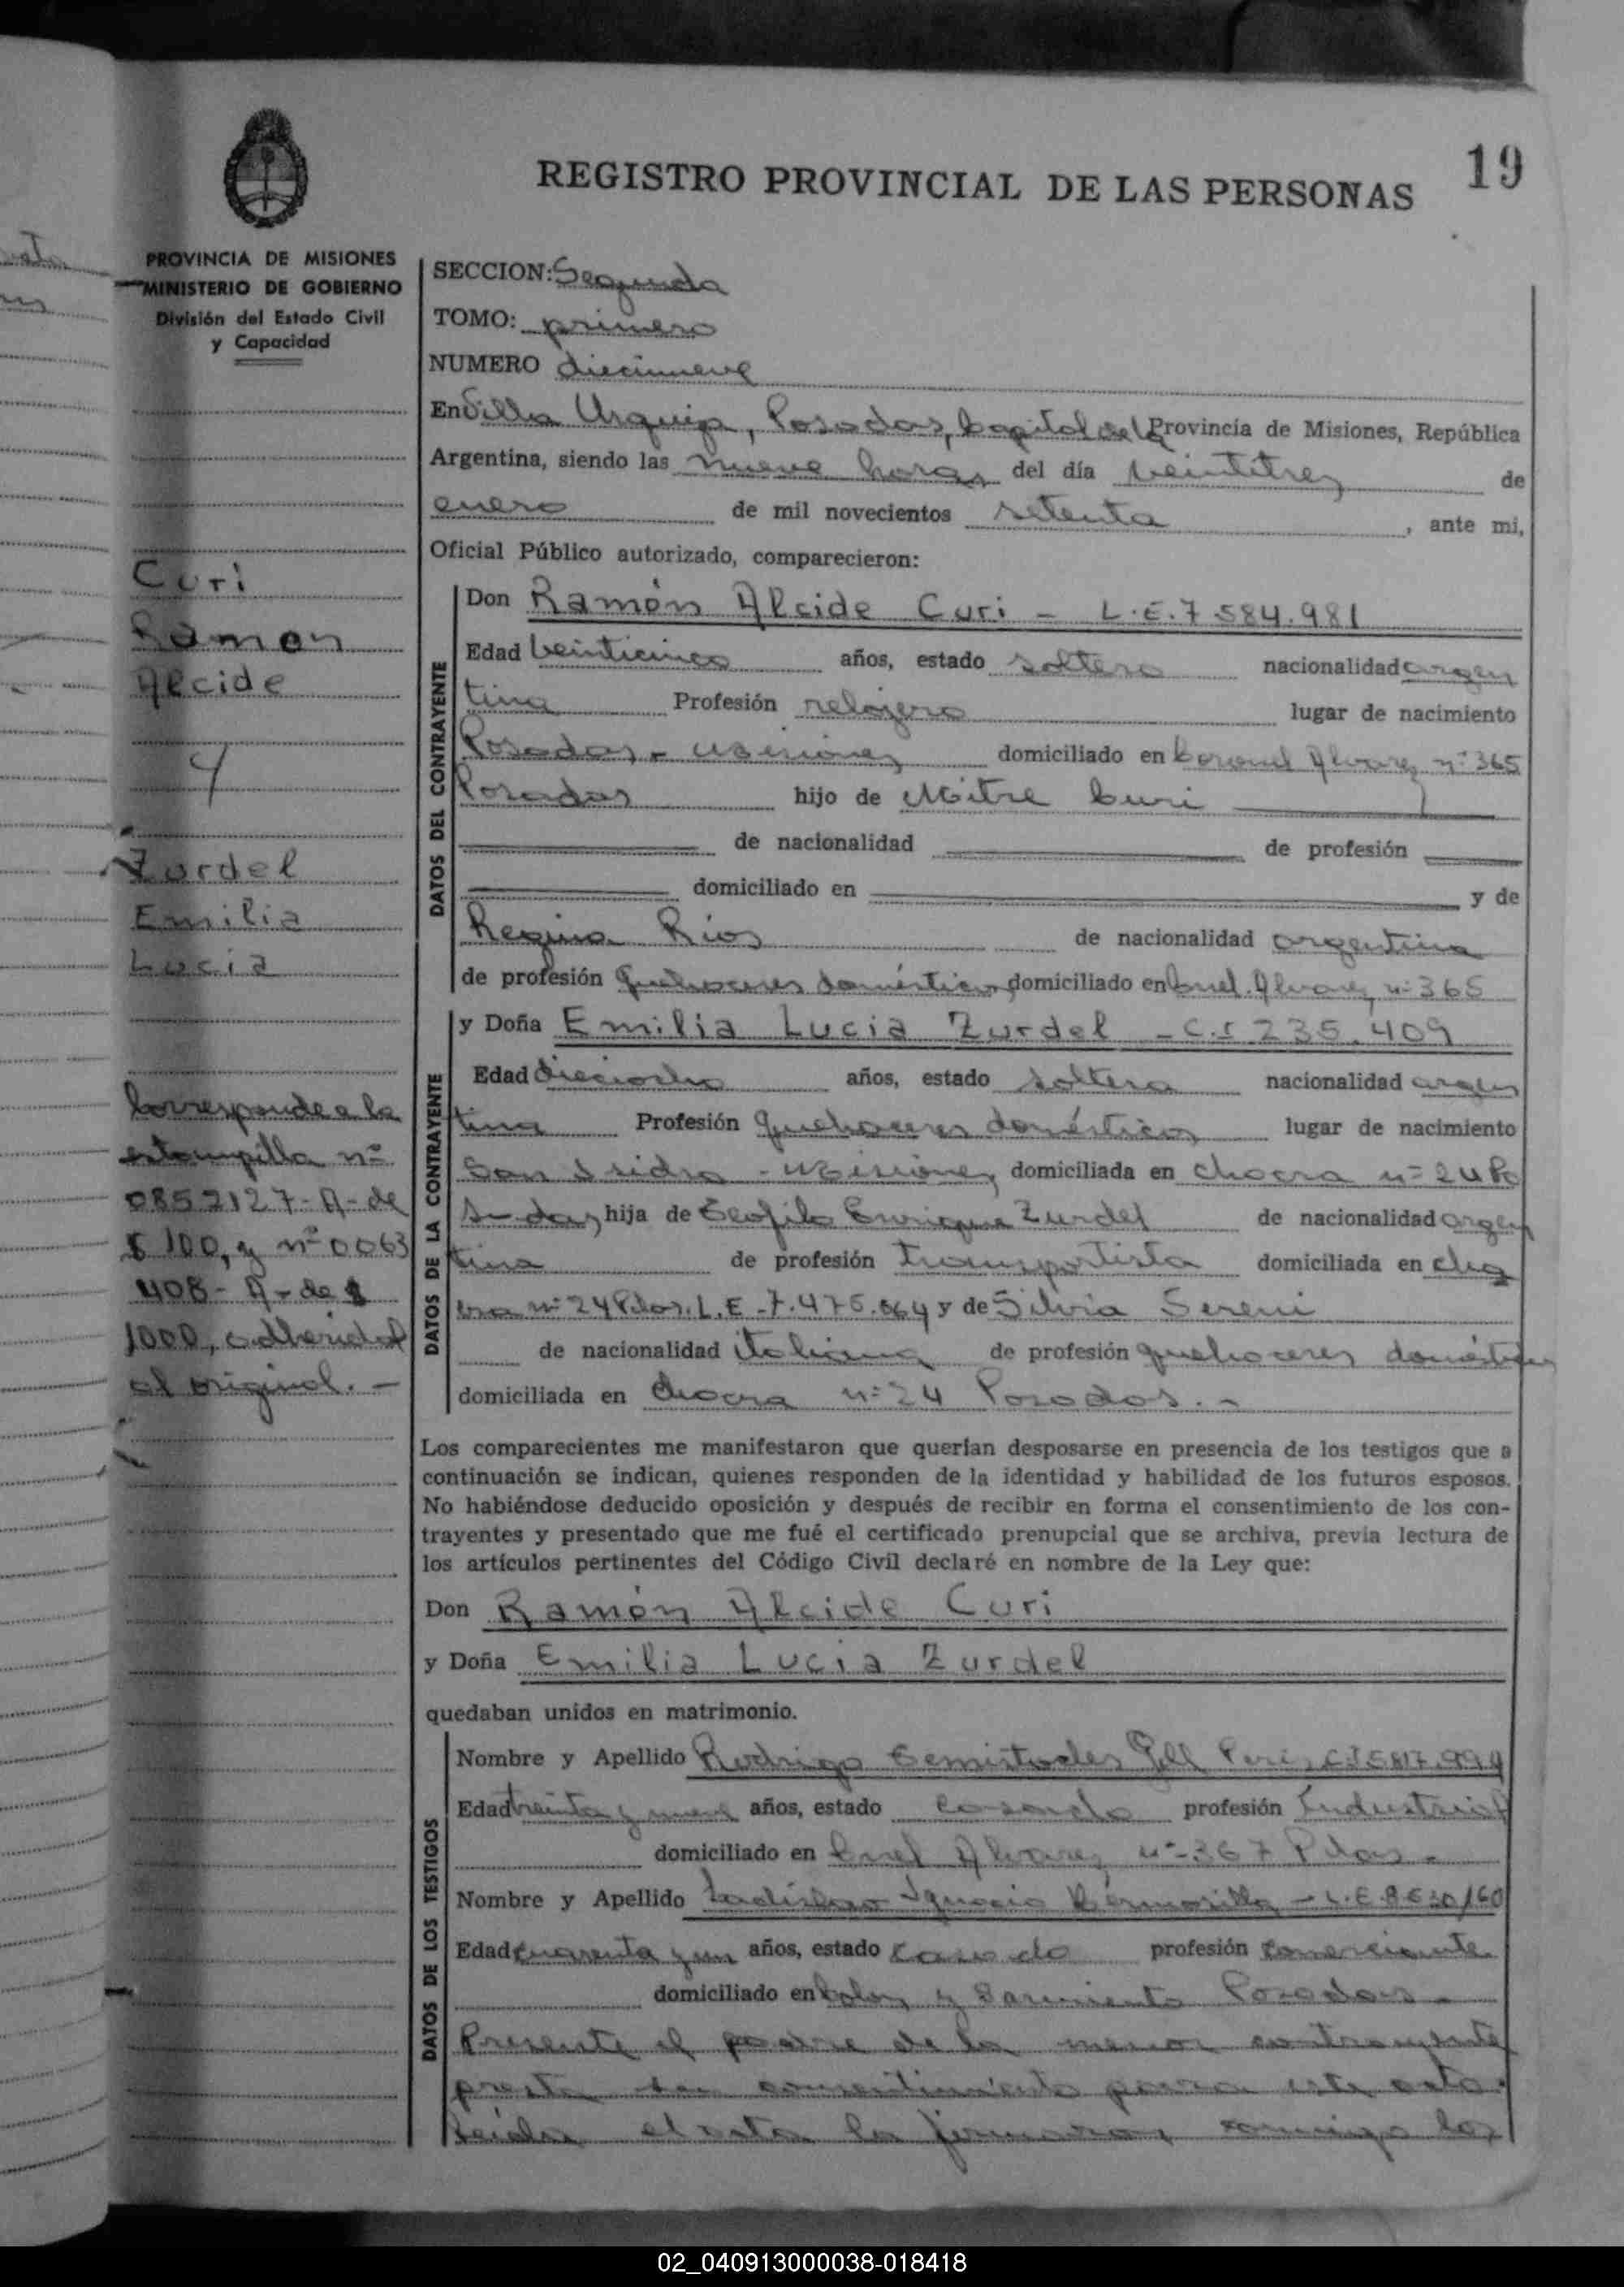 19
REGISTRO PROVINCIAL DE LAS PERSONAS
PROVINCIA DE MISIONES
MINISTERIO DE GOBIERNO
División del Estado Civil
y Capacidad
Curi
Ramon
Alcide
y
Zurdel
Emilia
Lucia
Corresponde a la
estampilla nº
0852127-A-de
$ 100, y nº 0063
408-A-de $
1000, adherida
al original.-
SECCION: Segunda
TOMO: primero
NUMERO diecinueve
En Villa Urquiza, Posadas, Capital de la Provincia de Misiones, República
Argentina, siendo las nueve horas del día veintitres de
enero de mil novecientos setenta, ante mi,
Oficial Público autorizado, comparecieron:
DATOS DEL CONTRAYENTE
Don Ramón Alcide Curi - L.E.7.584.981
Edad veinticinco años, estado soltero nacionalidad argen
tina Profesión relojero lugar de nacimiento
Posadas - Misiones domiciliado en Coronel Alvarez nº 365
Posadas hijo de Mitre Curi
de nacionalidad de profesión
domiciliado en y de
Regina Ríos de nacionalidad argentina
de profesión quehaceres domésticos domiciliado en Cnel. Alvarez nº 365
DATOS DE LA CONTRAYENTE
y Doña Emilia Lucia Zurdel - C.I 235.409
Edad dieciocho años, estado soltera nacionalidad argen
tina Profesión quehaceres domésticos lugar de nacimiento
San Isidro - Misiones domiciliada en chacra nº 24 Po
sadas hija de Teofilo Enrique Zurdel de nacionalidad argen
tina de profesión transportista domiciliada en cha
cra nº 24 Pdas. L.E-7.475.064 y de Silvia Sereni
de nacionalidad italiana de profesión quehaceres domésticos
domiciliada en chacra nº 24 Posadas.-
Los comparecientes me manifestaron que querían desposarse en presencia de los testigos que a
continuación se indican, quienes responden de la identidad y habilidad de los futuros esposos.
No habiéndose deducido oposición y después de recibir en forma el consentimiento de los con-
trayentes y presentado que me fué el certificado prenupcial que se archiva, previa lectura de
los artículos pertinentes del Código Civil declaré en nombre de la Ley que:
Don Ramón Alcide Curi
y Doña Emilia Lucia Zurdel
quedaban unidos en matrimonio.
DATOS DE LOS TESTIGOS
Nombre y Apellido Rodrigo Temistocles Gill
Edad treinta y nueve años, estado casado profesión Industrial
domiciliado en Cnel Alvarez nº 367 Pdas.
Nombre y Apellido Ladislao Ignacio - L.E.
Edad cuarenta y un años, estado casado profesión comerciante
domiciliado en Colon y Sarmiento Posadas.
Presente el padre de la menor contrayente
presta su consentimiento para este acto.
Leida el acta la firmaron conmigo los
02_040913000038-018418